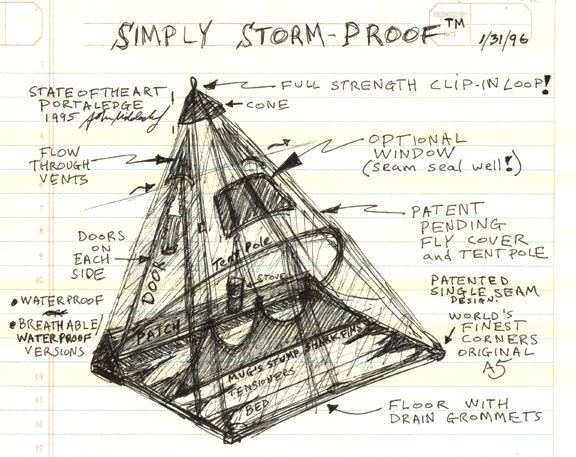 SIMPLY STORM-PROOF™
1/31/96
STATE OF THE ART
PORTALEDGE
1995
FULL STRENGTH CLIP-IN LOOP!
CONE
FLOW
THROUGH
VENTS
OPTIONAL
WINDOW
(seam seal well!)
PATENT
PENDING
FLY COVER
and TENT POLE
DOORS
ON
EACH
SIDE
DOOR
TENT POLE
STOVE
PATENTED
SINGLE SEAM
DESIGN
WORLD'S
FINEST
CORNERS
ORIGINAL
A5
• WATERPROOF
or
• BREATHABLE/
WATERPROOF
VERSIONS
PATCH
MUG'S STUMP SHARK FINS
TENSIONERS
BED
FLOOR WITH
DRAIN GROMMETS